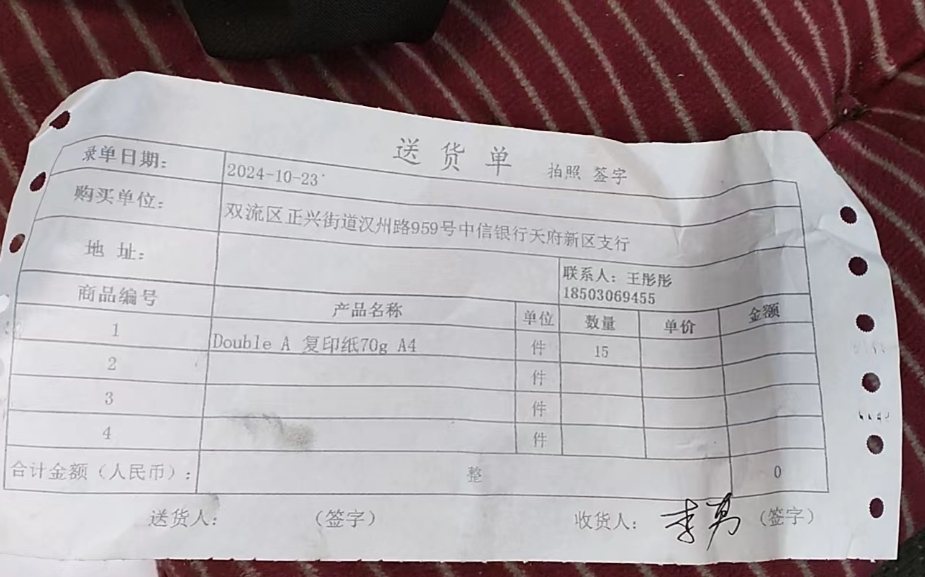 送货单 拍照 签字
录单日期： 2024-10-23
购买单位： 双流区正兴街道汉州路959号中信银行天府新区支行
地 址： 联系人：王彤彤
18503069455
商品编号 产品名称 单位 数量 单价 金额
1 Double A 复印纸70g A4 件 15
2 件
3 件
4 件
合计金额（人民币）： 整 0
送货人： （签字） 收货人： 李勇 （签字）